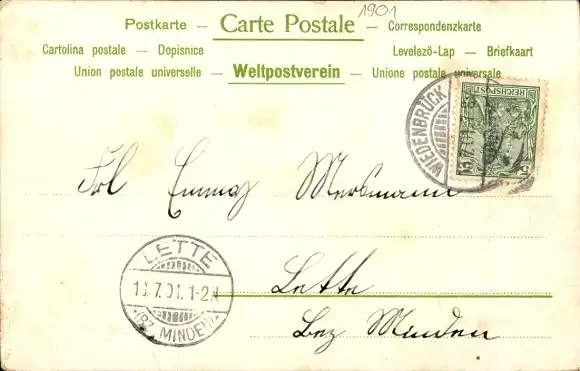 1901
Postkarte — Carte Postale — Correspondenzkarte
Cartolina postale — Dopisnice Levelező-Lap — Briefkaart
Union postale universelle — Weltpostverein — Unione postale universale
REICHSPOST
5
WIEDENBRÜCK
7.01
Frl Emmy Mersmann
LETTE
7.01.1-2N
(BZ. MINDEN)
Lette
Bez Minden